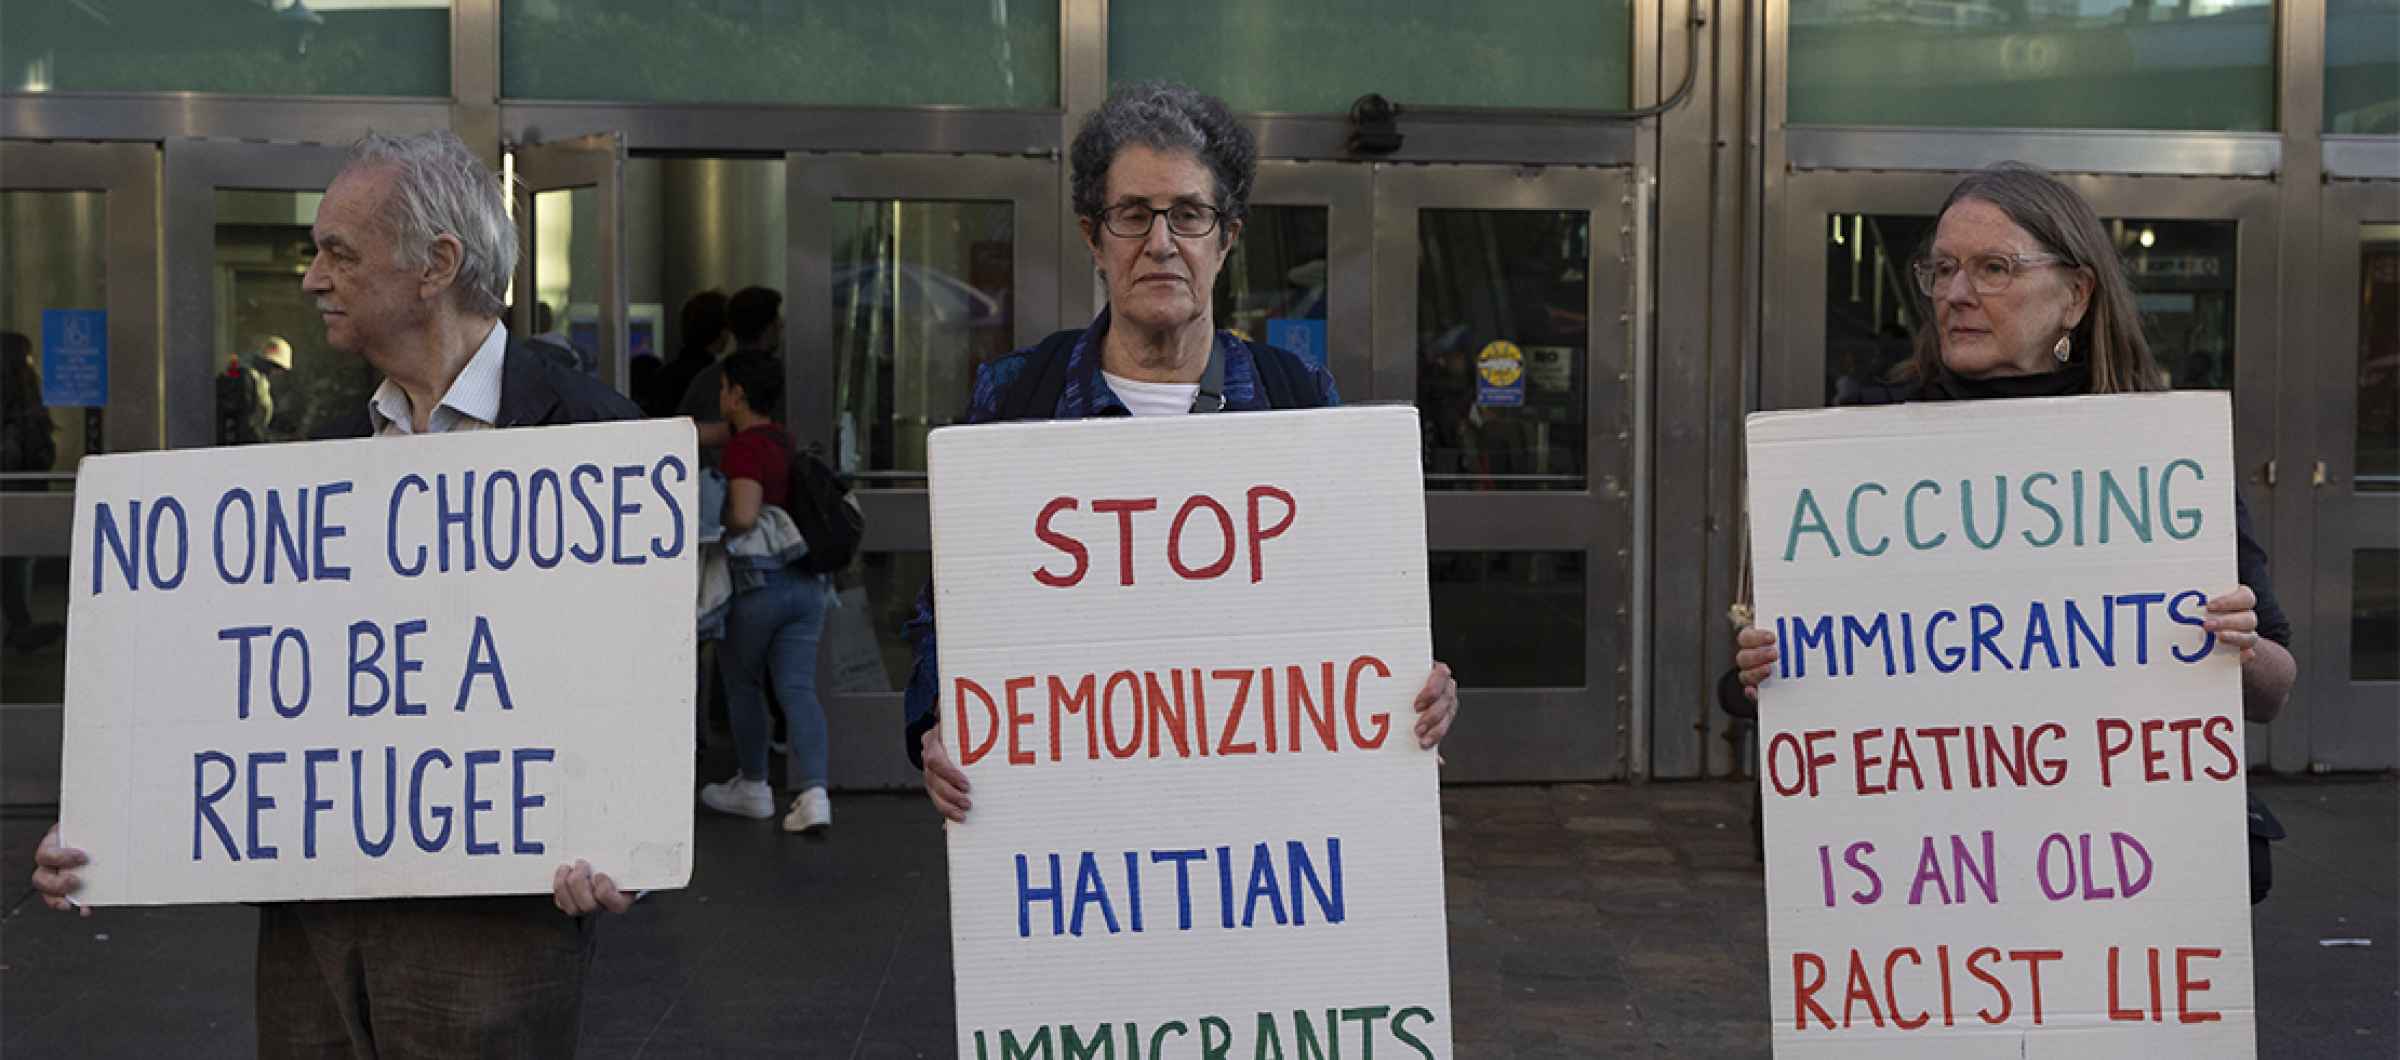 NO ONE CHOOSES
TO BE A
REFUGEE
STOP
DEMONIZING
HAITIAN
IMMIGRANTS
ACCUSING
IMMIGRANTS
OF EATING PETS
IS AN OLD
RACIST LIE
NO